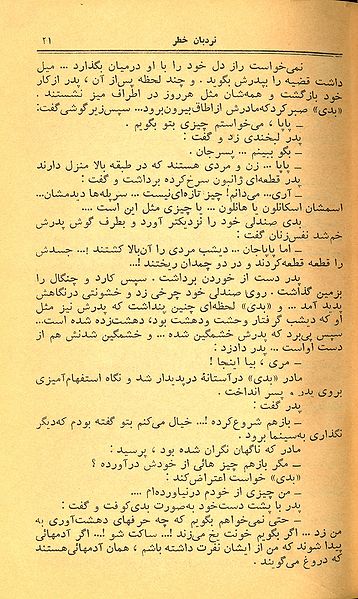 نردبان خطر ۲۱
نمی‌خواست راز دل خود را با او درمیان بگذارد ... میل
داشت قضیه را بپدرش بگوید . و چند لحظه پس‌از آن ، پدر ازکار
خود بازگشت و همه‌شان مثل هرروز در اطراف میز نشستند .
«بدی» صبر کرد که مادرش از اطاق بیرون برود... سپس زیر گوشی گفت:
ـ پاپا ، می‌خواستم چیزی بتو بگویم .
پدر لبخندی زد و گفت :
ـ بگو ببینم ... پسرجان .
ـ پاپا ... زن و مردی هستند که در طبقه بالا منزل دارند
پدر قطعه‌ای ژانبون سرخ‌کرده برداشت و گفت :
ـ آری... می‌دانم! چیز تازه‌ای‌نیست ... سرپله‌ها دیدمشان...
اسمشان اسکالون یا هالون... یا چیزی مثل این است ....
بدی صندلی خود را نزدیکتر آورد و بطرف گوش پدرش
خم‌شد نفس‌زنان گفت :
ـ اما پاپاجان ... دیشب مردی را آن‌بالا کشتند !... جسدش
را قطعه قطعه‌کردند و در دو چمدان ریختند !...
پدر دست از خوردن برداشت . سپس کارد و چنگال را
بزمین گذاشت . روی صندلی خود چرخی زد و خشونتی درنگاهش
پدید آمد ... و «بدی» لحظه‌ای چنین پنداشت که پدرش نیز مثل
او که دیشب گرفتار وحشت ودهشت بود، دهشت‌زده شده است...
سپس پی‌برد که پدرش خشمگین شده ... و خشمگین شدنش هم از
دست اواست ... پدر دادزد :
ـ مری ، بیا اینجا !
مادر «بدی» درآستانهٔ در پدیدار شد و نگاه استفهام‌آمیزی
بروی پدر و پسر انداخت .
پدر گفت :
ـ بازهم شروع‌کرده !... خیال می‌کنم بتو گفته بودم که‌دیگر
نگذاری به‌سینما برود .
مادر که ناگهان نگران شده بود ، پرسید :
ـ مگر بازهم چیز هائی از خودش درآورده ؟
«بدی» خواست اعتراض‌کند :
ـ من چیزی از خودم درنیاورده‌ام ....
پدر با پشت دست‌خود به‌صورت بدی‌کوفت و گفت :
ـ حتی نمی‌خواهم بگویم که چه حرفهای دهشت‌آوری به
من زد ... اگر بگویم خونت یخ می‌زند !... ساکت شو !... اگر آدمهائی
پیدا شوند که من از ایشان نفرت داشته باشم ، همان آدمهائی‌هستند
که دروغ می‌گویند .